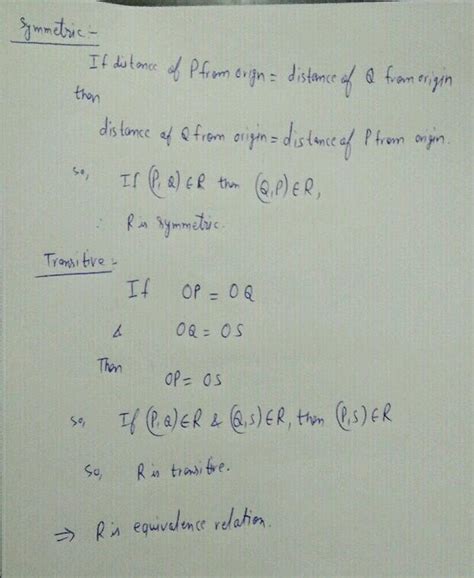 Symmetric:-
If distance of P from orign = distance of Q from origin
then
distance of Q from origin = distance of P from origin.
so, If (P,Q)∈R then (Q,P)∈R,
∴ R is symmetric.
Transitive:-
If OP = OQ
& OQ = OS
Then
OP = OS
so, If (P,Q)∈R & (Q,S)∈R, then (P,S)∈R
So, R is transitive.
⇒ R is equivalence relation.